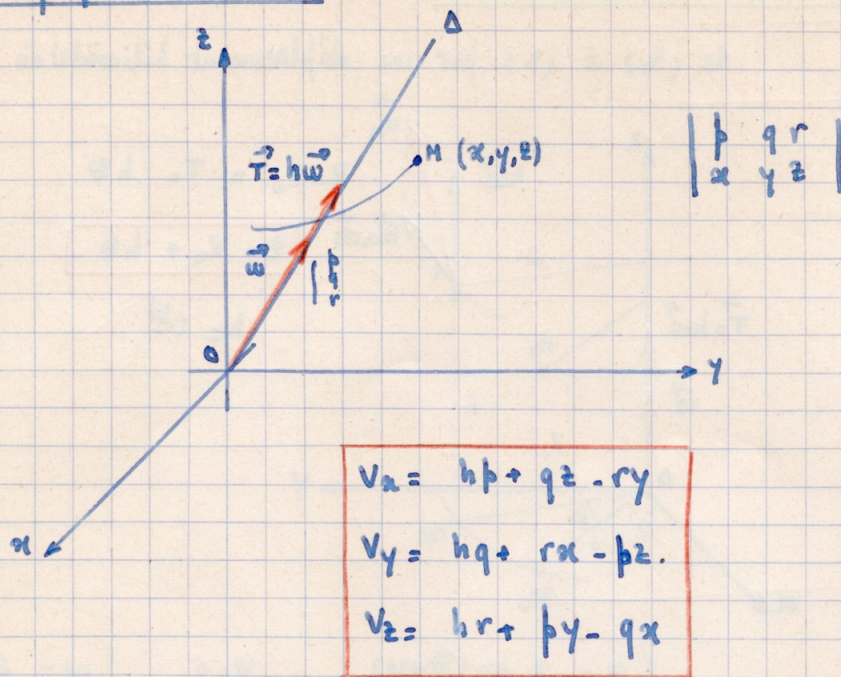 z
Δ
T⃗ = hω⃗
M (x,y,z)
| p q r |
| x y z |
ω⃗
| p
q
r
O
y
x
Vx = hp + qz - ry
Vy = hq + rx - pz.
Vz = hr + py - qx